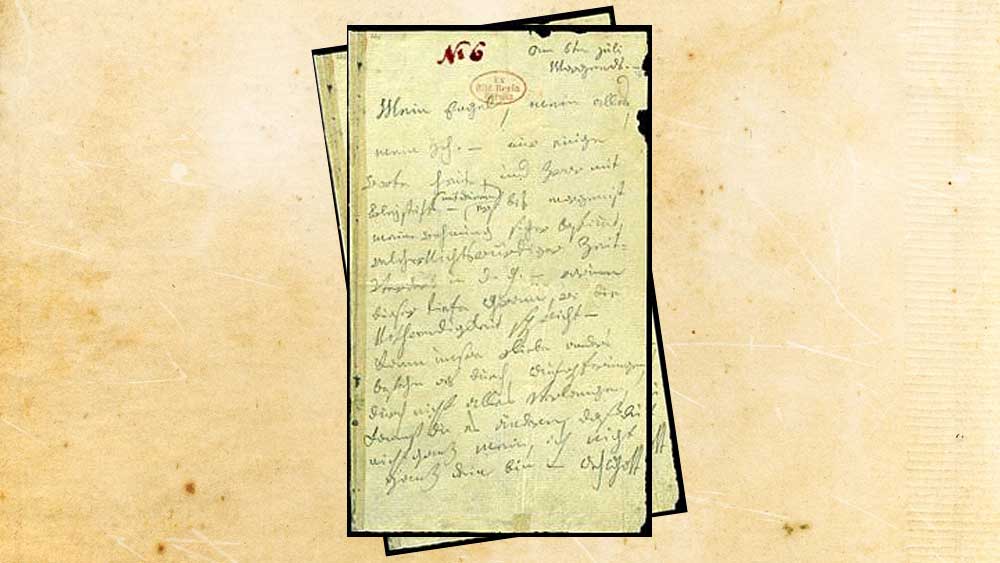 No 6
am 6ten Juli
Morgends. –
Ex
Mein Engel, mein alles
mein Ich. – nur einige
Worte heute, und zwar mit
Bleystift – (mit deinem) bis morgen ist
meine Wohnung sicher bestimt,
welcher Nichtswürdiger Zeit-
verderb in d. g. – warum
dieser tiefe Gram, wo die
Nothwendigkeit spricht –
Kann unsre Liebe anders
bestehn als durch Aufopferungen,
durch nicht alles verlangen,
kannst du es ändern, daß du
nicht ganz mein, ich nicht
ganz dein bin – Ach Gott